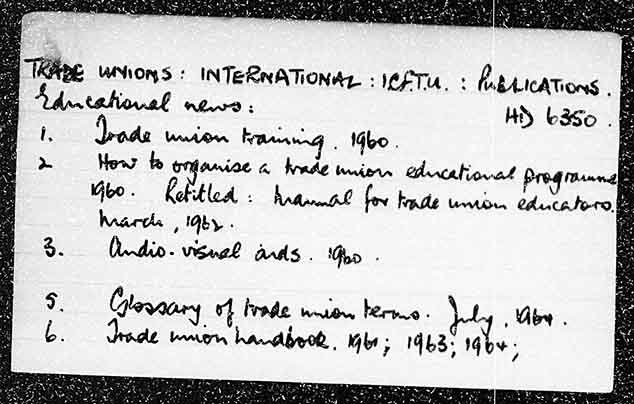 TRADE UNIONS: INTERNATIONAL: I.C.F.T.U. : PUBLICATIONS.
Educational news:
HD 6350.
1. Trade union training. 1960.
2 How to organise a trade union educational programme
1960. Retitled: Manual for trade union educators.
March, 1962.
3. Audio-visual aids. 1960.
5. Glossary of trade union terms. July, 1964.
6. Trade union handbook. 1961; 1963; 1964;